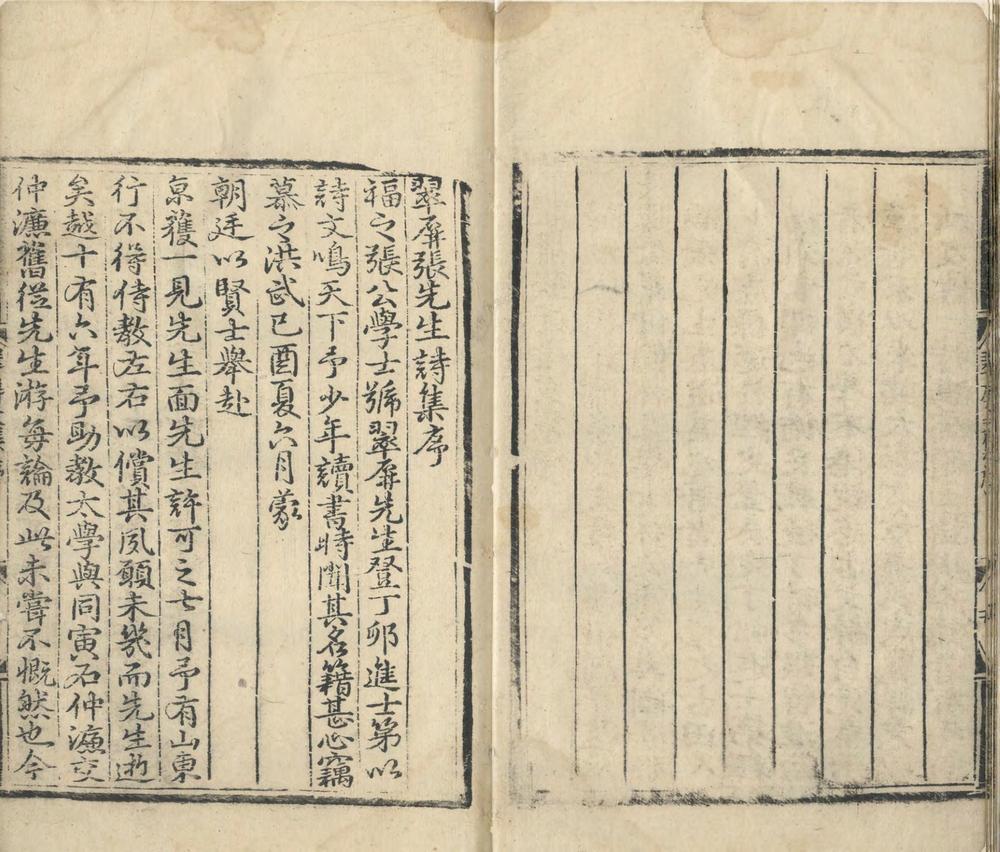 翠屏張先生詩集序
福之張公學士號翠屏先生登丁卯進士第以
詩文鳴天下予少年讀書時聞其名籍甚心竊
慕之洪武己酉夏六月蒙
朝廷以賢士舉赴
京獲一見先生面先生許可之七月予有山東
行不得侍教左右以償其夙願未幾而先生逝
矣越十有六年予助教太學與同寅石仲濂交
仲濂舊從先生游每論及此未嘗不慨然也今